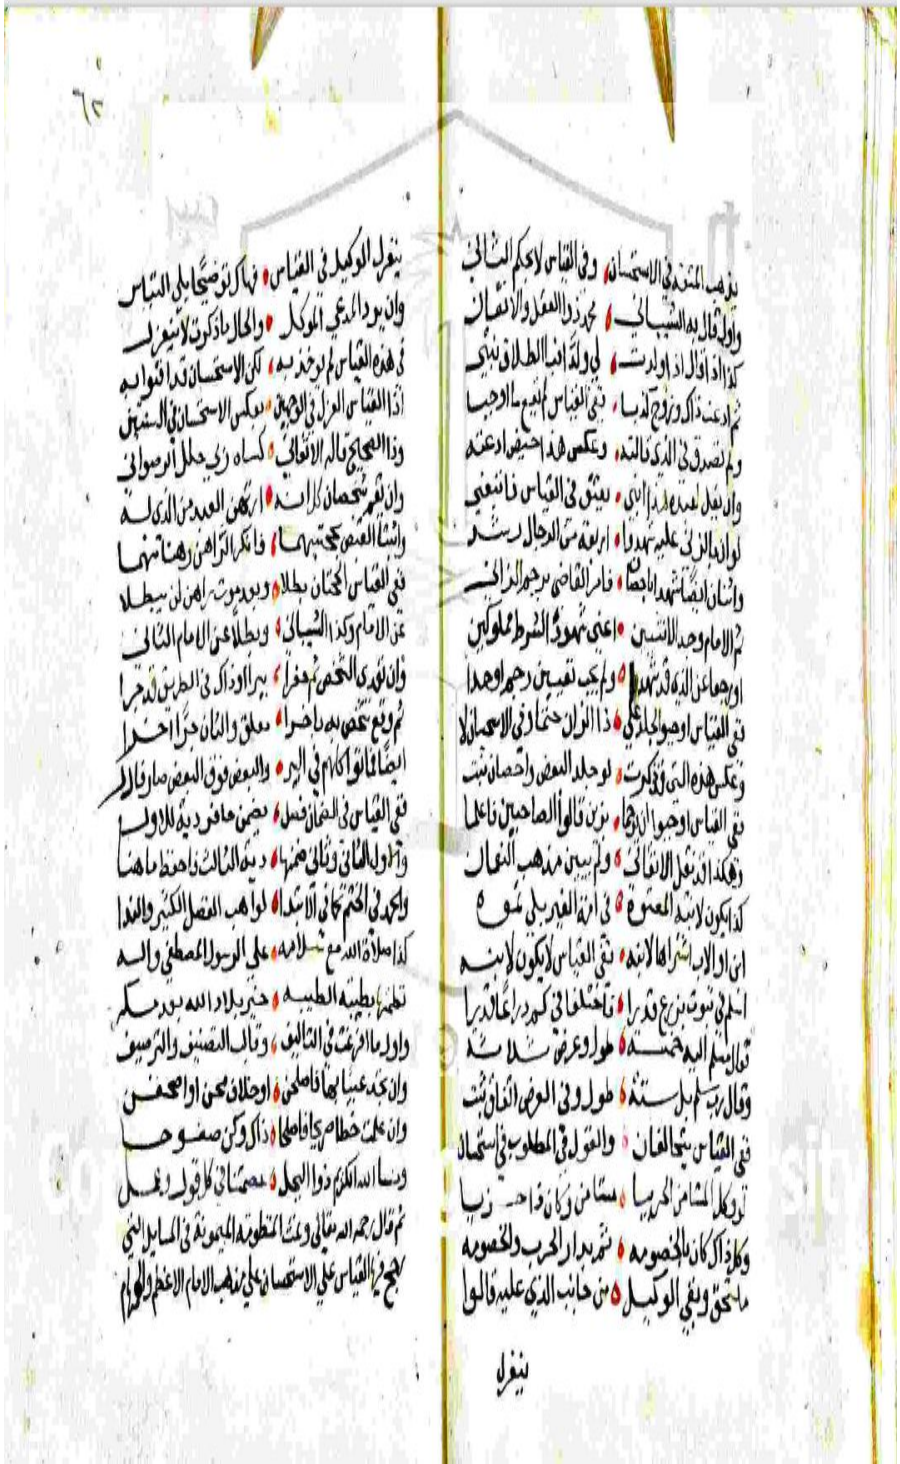 يذهب المتوفي الاستحسان وفي القياس لا يحكم الثاني
واول قال به الشيباني محمد ذو العقل والاتقان
كذا اذا قال اذا ولدت لي ولدا فبالطلاق نبئي
ثم ادعت ذاك وزوج كذبا ففي القياس لم يقع ما اوجبا
ولم تصدق في الذي قالته وعكس هذا حيض ادعته
وان يقل لعبده هذا ابني يعتق في القياس فاتبعني
لو ان بالزنى عليه شهدوا اربعة من الرجال
واثنان ايضا شهدا باحصان فامر القاضي برجم الزاني
ثم الامام وجد الاثنين اعني شهود الشرط مملوكين
او رجعا عن الذي قد شهدا ولم يجب
ففي القياس اوجبوا الجلد علي ذا الزان حتما وفي الاستحسان لا
وعكس هذه التي ذكرت لو جلد البعض واحصان ثبت
ففي القياس اوجبوا ان يرجما قالوا الصاحبين فاعلما
وهكذا قد نقل الاتقاني ولم يبين مذهب النعمان
كذا يكون لابنه المعتوه في امة الغير يلي
ابن او الاب اشتراها لابنه ففي القياس لا يكون لابنه
اسلم في ثوب بزرع قدرا فاختلفا في كم ذراعا قدرا
فقال مسلم اليه خمسة طول وعرض ثلاثة
وقال رب سلم بل ستة طول وفي العرض اتفاق ثبت
ففي القياس يتحالفان والقول في المطلوب في استحسان
لو وكل المستامن الحربيا مستامن وكان ذا حربيا
وكل ذاك كان بالخصومه ثم بدار الحرب والخصومه
ما تحق وبقي الوكيل من جانب الذي عليه قالوا
ينعزل
٦٢
ينعزل الوكيل في القياس فهاك توضيحا يلي القياس
وان يرد المدعي الموكل والحال ما ذكرت لا ينعزل
في هذه القياس لم نوخذ به لكن الاستحسان قد افتوا به
اذا القياس العزل في الوجهين بعكس الاستحسان في
وذا الصحيح قاله الاتقاني كساه ربي حلل الرضوان
وان يقم شخصان كل انه ارتهن العبد من الذي له
واثبتا القبض بحجتيهما فانكر الراهن رهنا منهما
ففي القياس الحجتان بطلا وبعد موت راهن لن يبطلا
عن الامام وكذا الشيباني وبطلا عن الامام الثاني
وان تعدى الشخص ثم حفرا بيرا وذاك في الطريق قد جرا
ثم وقع شخص به باخرا معلق والثان جر اخرا
ايضا فماتوا كلهم في البر والبعض فوق البعض صار فادر
ففي القياس في الضمان فصل يضمن حافر دية للاول
واول الثاني وثاني ضمنها دية الثالث فاحفظ ما هنا
والحمد في الختم كما في الابتدا لواهب الفضل الكثير والندا
كذا صلاة الله مع سلامه علي الرسول المصطفى واله
نظمتها بطيبة الطيبه خير بلاد الله بعد
واول ما افرغت في التاليف وقالب التصنيف والترصيف
وان تجد عيبا بها فاصلحن اوخلاف
وان علمت خطا صريحا فاصلحا ذاك وكن صفوحا
ونسال الله الكريم ذو البجل عصمتنا في كل قول وعمل
ثم قال رحمه الله تعالى وتمت المنظومة الميمونة في المسايل التي
رجح فيها القياس علي الاستحسان علي مذهب الامام الاعظم